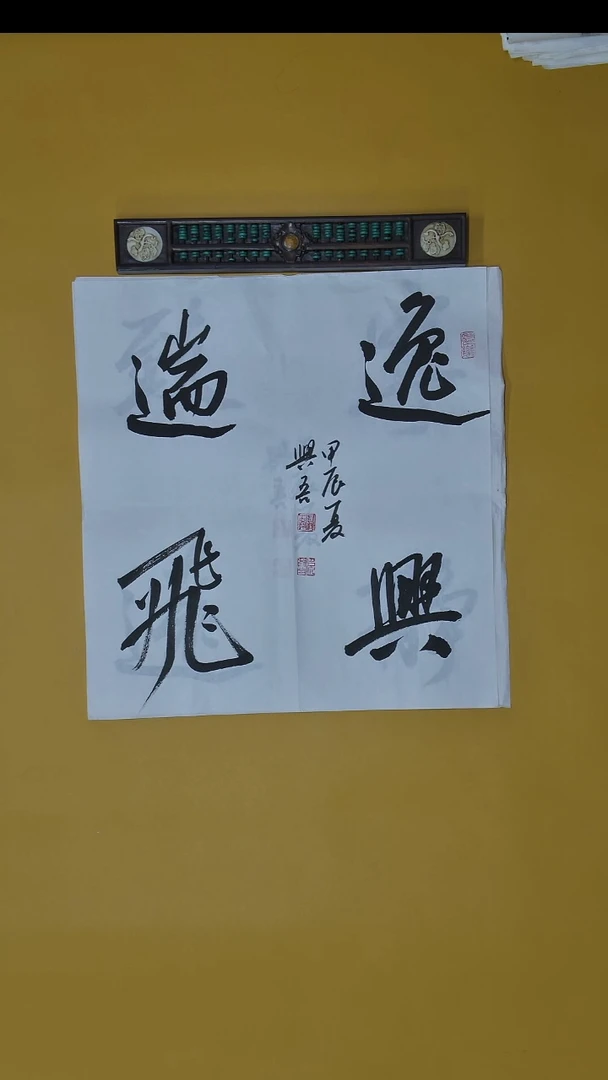 逸興
遄飛
甲辰夏
興吾